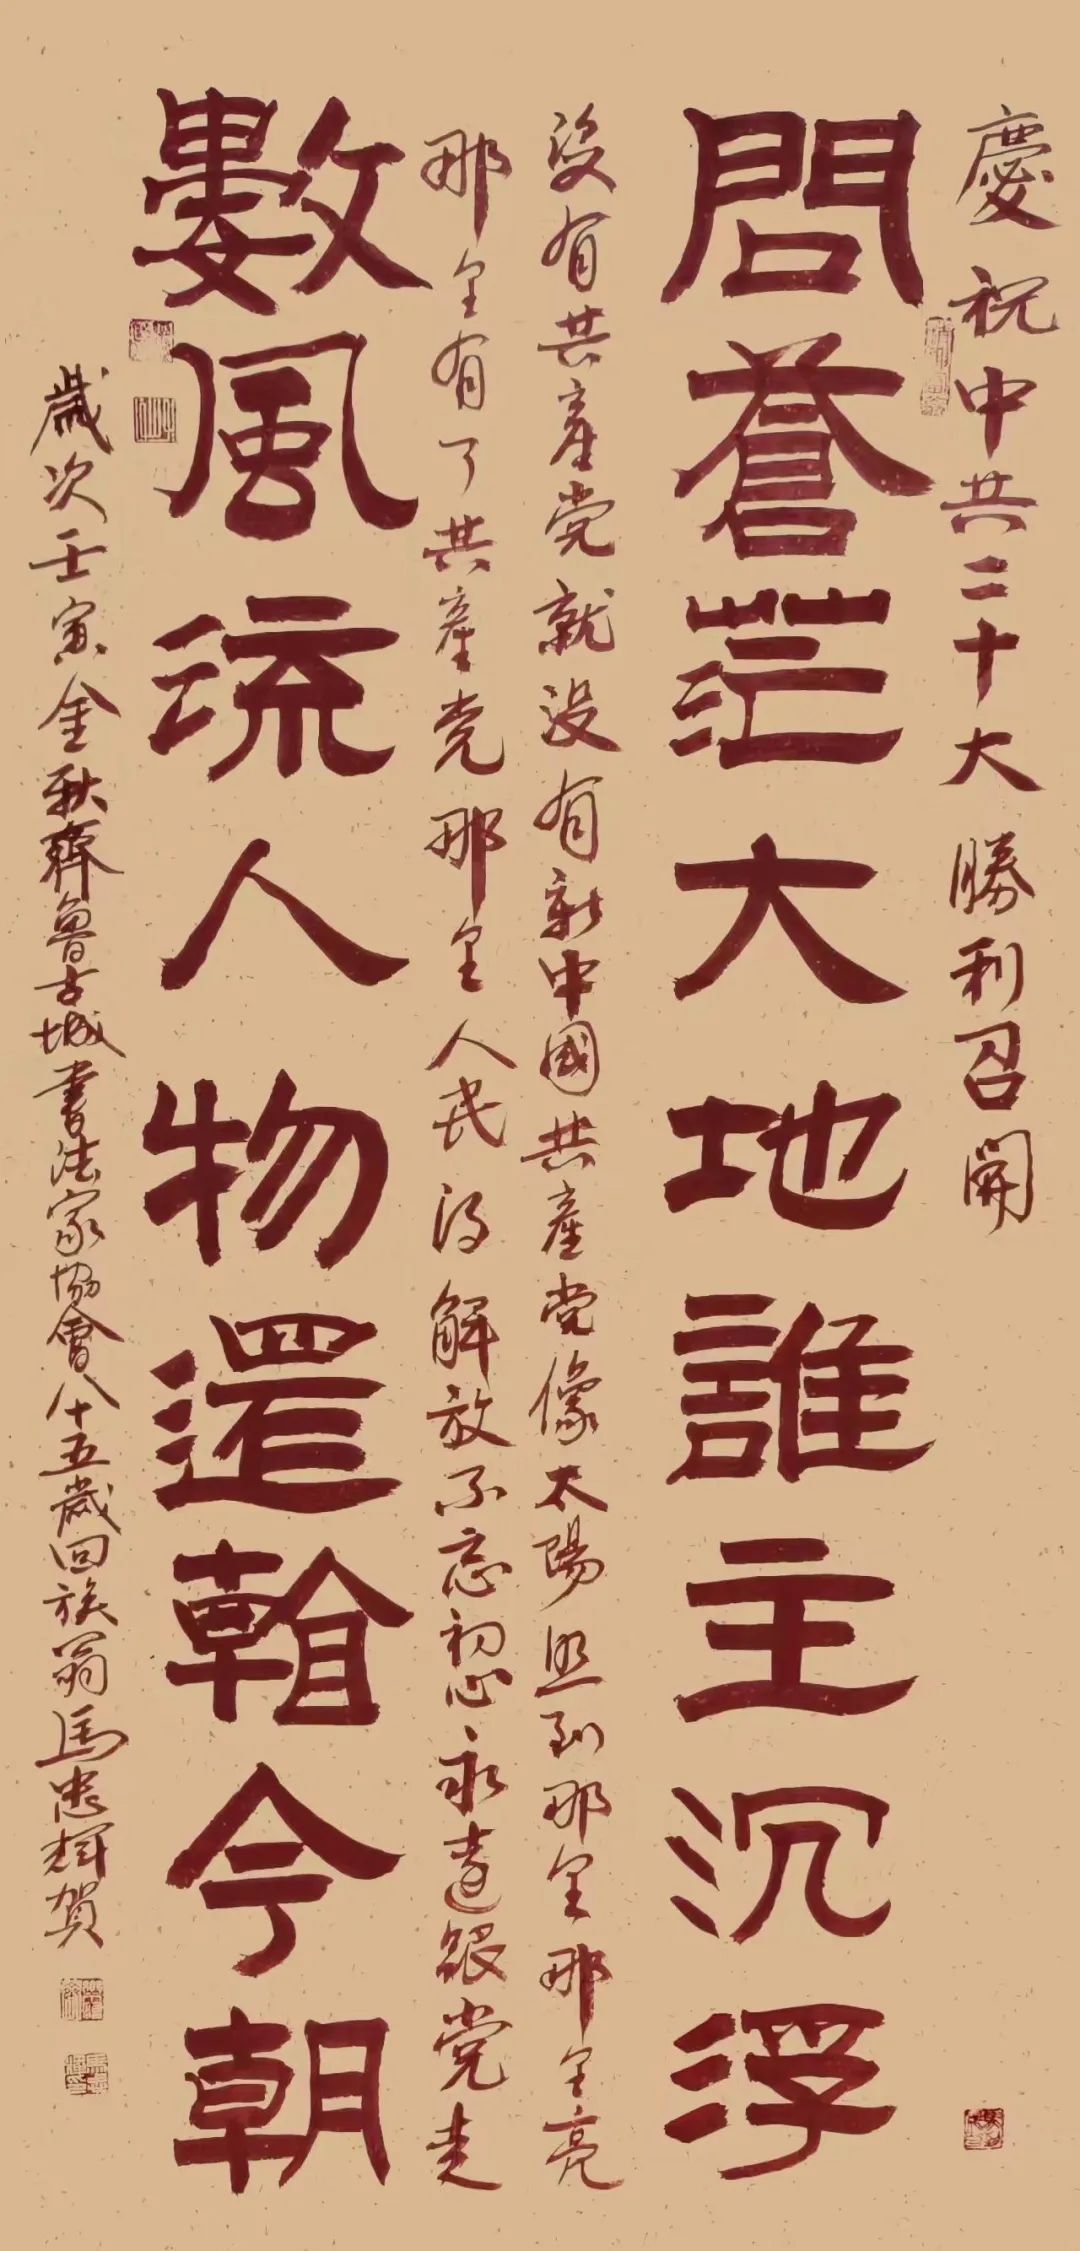 慶祝中共二十大勝利召開
問蒼茫大地誰主沉浮
没有共產党就没有新中國共產党像太陽照到那里那里亮
那里有了共產党那里人民得解放不忘初心永遠跟党走
數風流人物還看今朝
歲次壬寅金秋齊魯古城書法家協會八十五歲回族翁馬忠輝賀